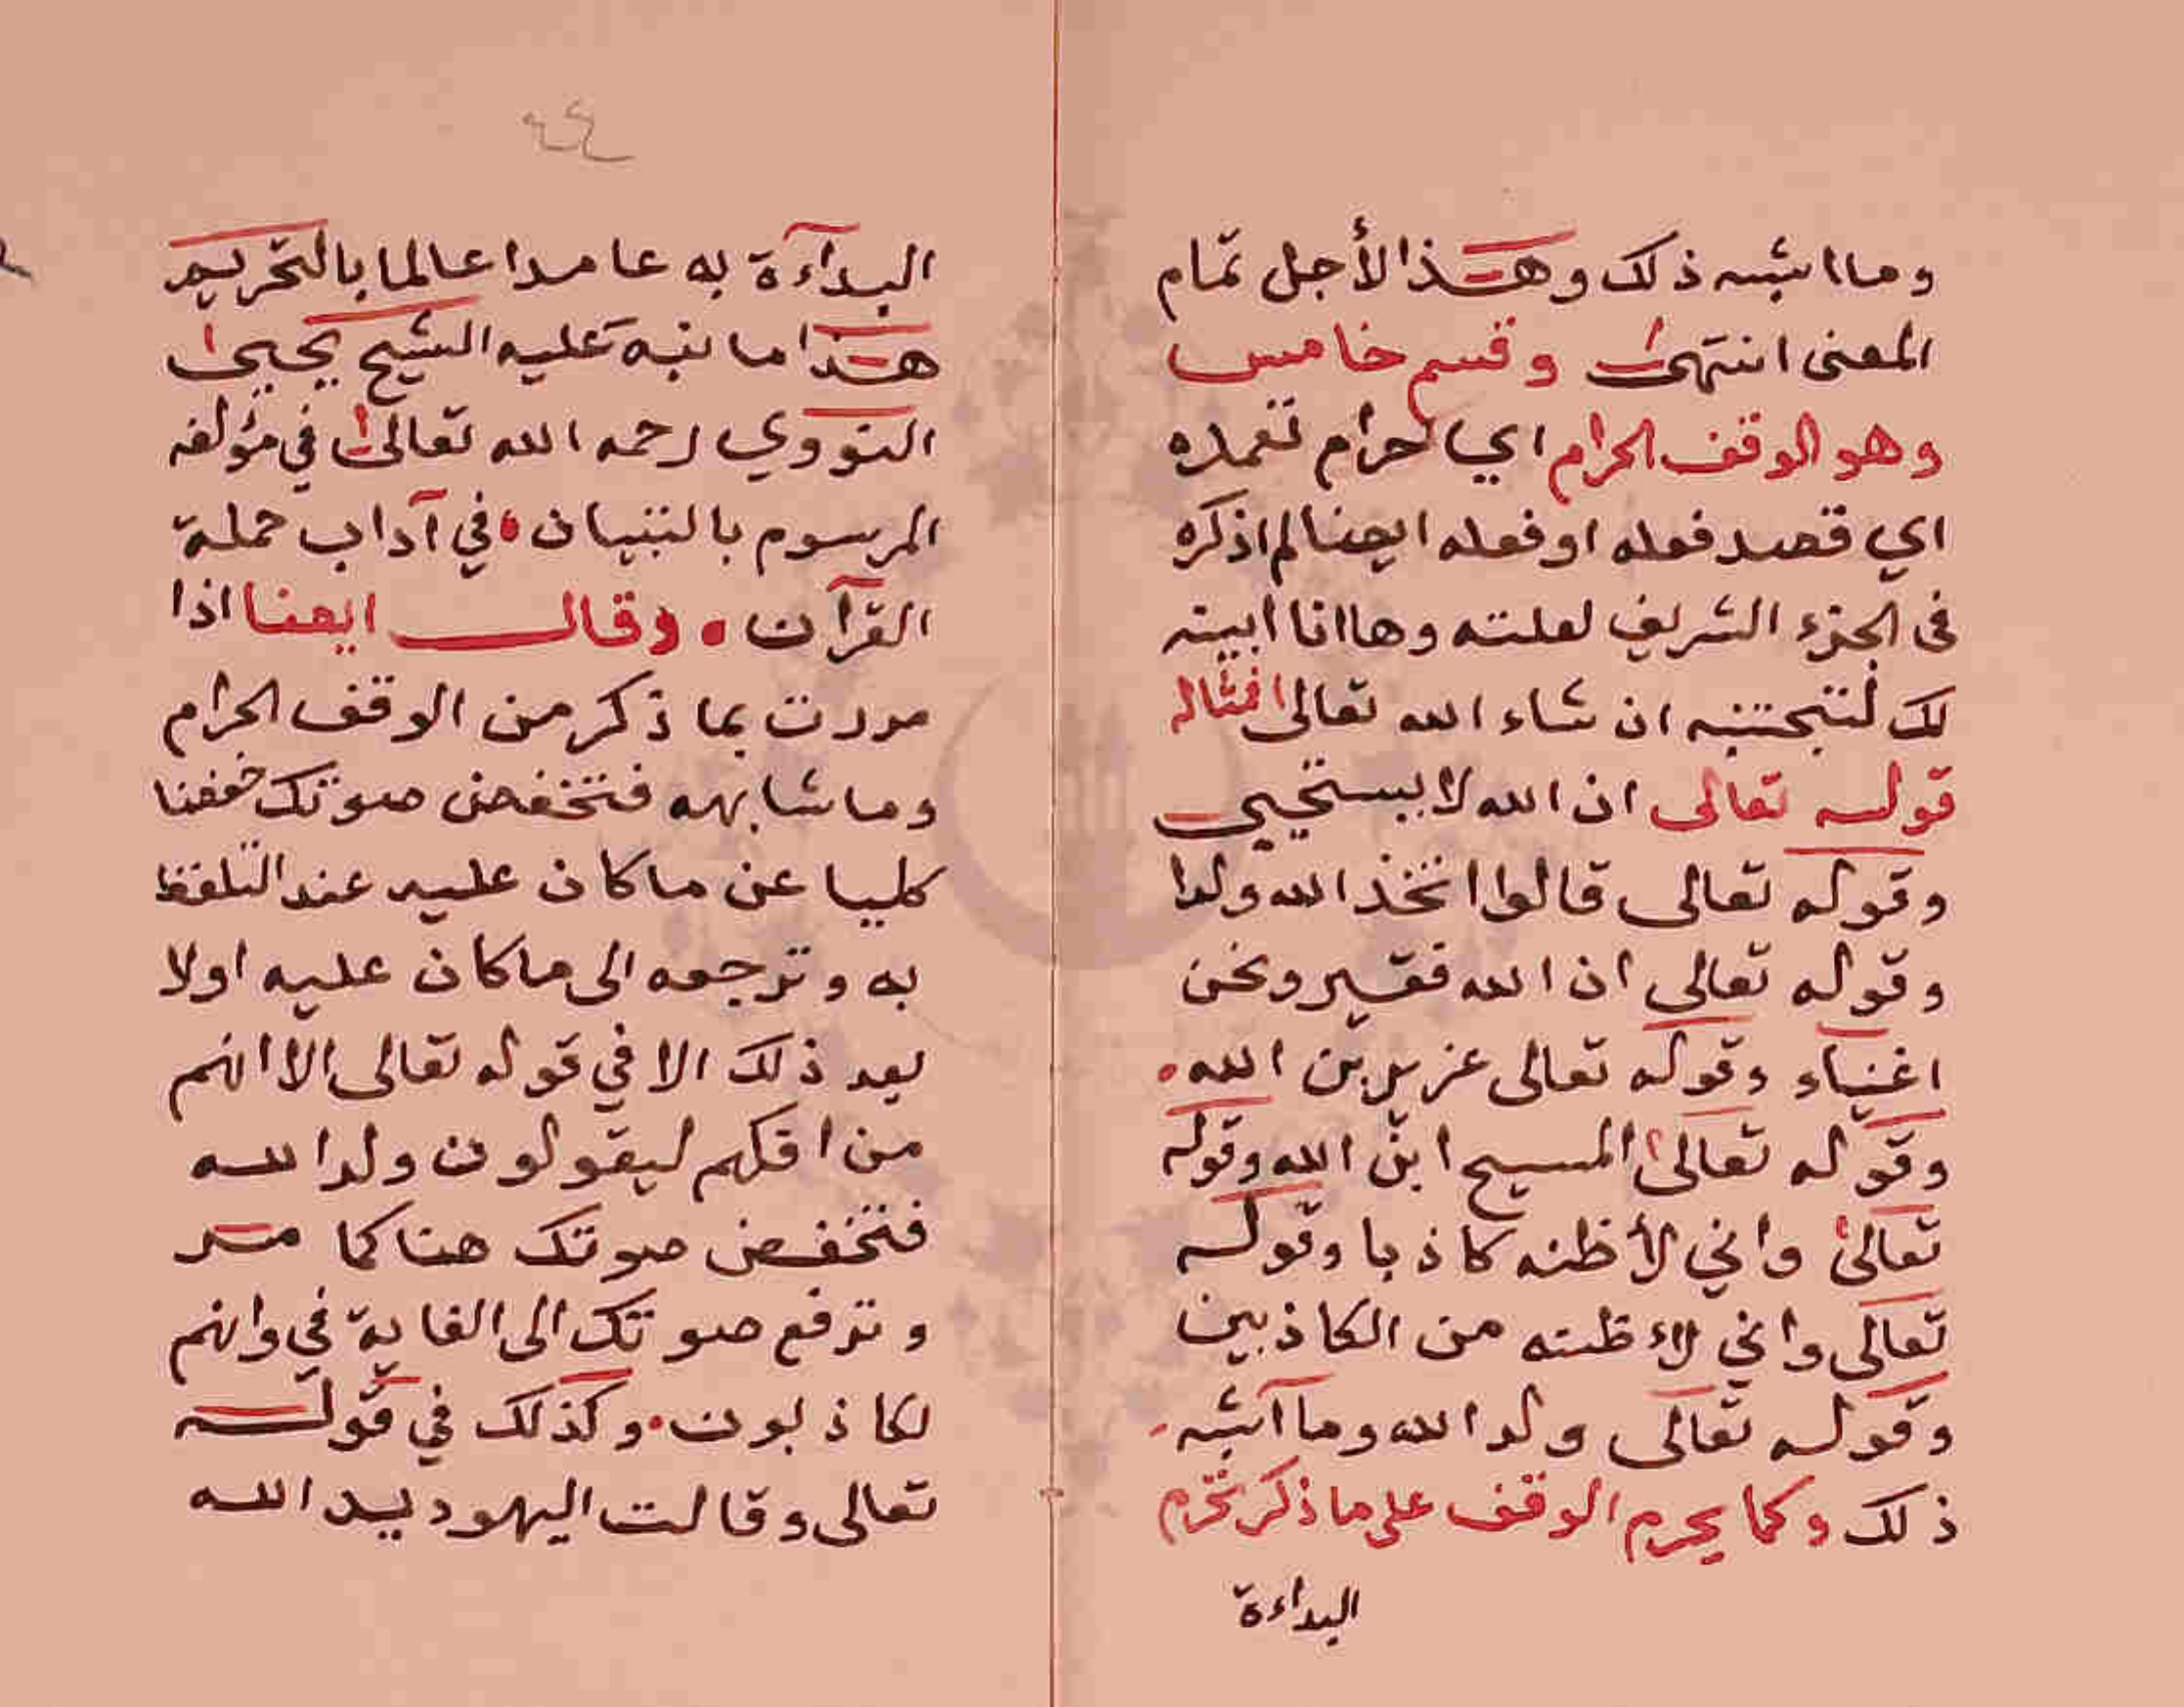 وما اشبه ذلك وهذا لأجل تمام
المعنى انتهى وقسم خامس
وهو الوقف الحرام اي حرام تعمده
اي قصد فعله او فعله ايضا لم اذكره
فى الجزء الشريف لعلته وها انا ابينه
لك لتجتنبه ان شاء الله تعالى فمثاله
قوله تعالى ان الله لا يستحيي
وقوله تعالى قالوا اتخذ الله ولدا
وقوله تعالى ان الله فقير ونحن
اغنياء وقوله تعالى عزير بن الله
وقوله تعالى المسيح ابن الله وقوله
تعالى واني لأظنه كاذبا وقوله
تعالى واني لاءظنه من الكاذبين
وقوله تعالى ولد الله وما آشبه
ذلك وكما يحرم الوقف على ما ذكر تحرم
البداءة
البدآءة به عامدا عالما بالتحريم
هذا ما نبه عليه الشيخ يحيى
النووي رحمه الله تعالى في مؤلفه
المرسوم بالتبيان في آداب حملة
القرآن وقال ايضا اذا
مررت بما ذكر من الوقف الحرام
وما شابهه فتخفض صوتك خفضا
كليا عن ما كان عليه عند التلفظ
به وترجعه الى ما كان عليه اولا
بعد ذلك الا في قوله تعالى الا انهم
من افكهم ليقولون ولد الله
فتخفض صوتك هنا كما مر
وترفع صوتك الى الغاية في وانهم
لكاذبون وكذلك في قوله
تعالى وقالت اليهود يد الله